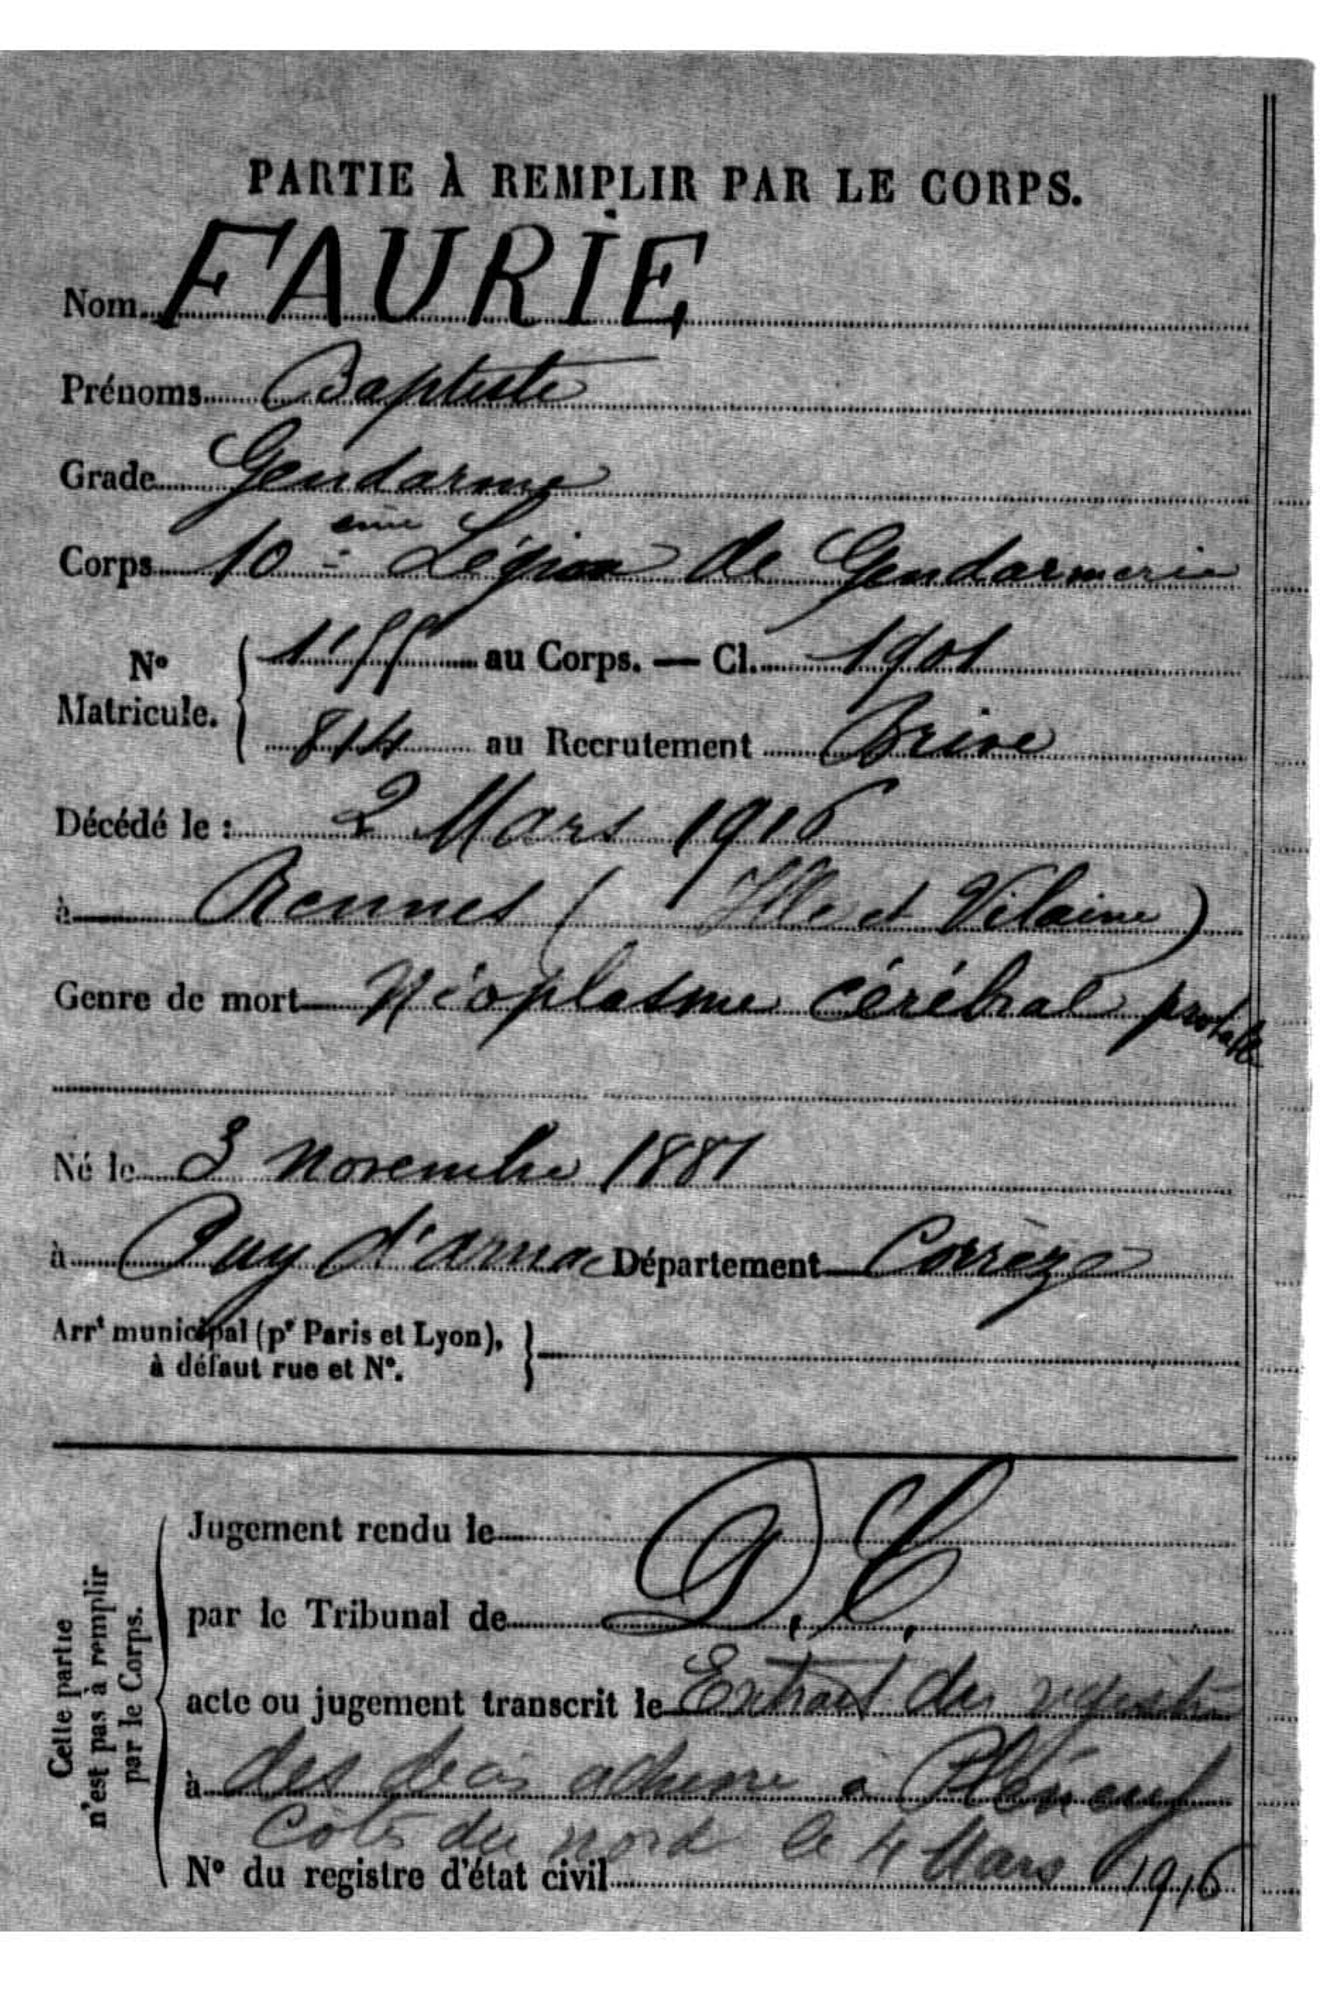 PARTIE À REMPLIR PAR LE CORPS.
Nom FAURIE
Prénoms Baptiste
Grade Gendarme
Corps 10 ème Légion de Gendarmerie
N° Matricule. 1155 au Corps. — Cl. 1901
814 au Recrutement Brive
Décédé le : 2 Mars 1916
à Rennes (Ille et Vilaine)
Genre de mort Néoplasme cérébral probable
Né le 3 Novembre 1881
à Puy d'arnac Département Corrèze
Arrt municipal (pr Paris et Lyon),
à défaut rue et N°.
Cette partie
n'est pas à remplir
par le Corps.
Jugement rendu le
par le Tribunal de D. C.
acte ou jugement transcrit le Extrait du registre
à des décès adressé a Pléneuf
Côtes du nord le 4 Mars 1916
N° du registre d'état civil